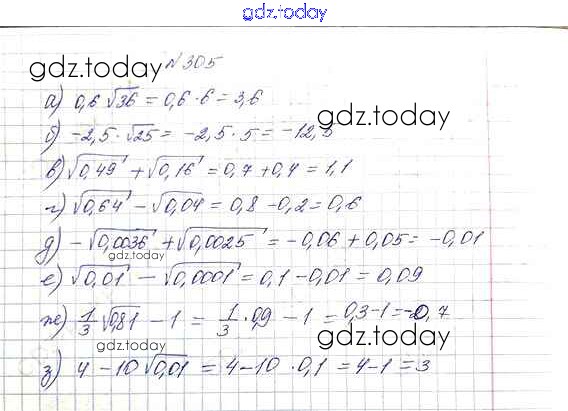 gdz.today
gdz.today №305
а) 0,6 √36 = 0,6 · 6 = 3,6
gdz.today
б) -2,5 · √25 = -2,5 · 5 = -12,5
в) √0,49 + √0,16 = 0,7 + 0,4 = 1,1
г) √0,64 - √0,04 = 0,8 - 0,2 = 0,6
д) -√0,0036 + √0,0025 = -0,06 + 0,05 = -0,01
gdz.today
е) √0,01 - √0,0001 = 0,1 - 0,01 = 0,09
ж) 1/3 √0,81 - 1 = 1/3 · 0,9 - 1 = 0,3 - 1 = -0,7
gdz.today
з) 4 - 10 √0,01 = 4 - 10 · 0,1 = 4 - 1 = 3